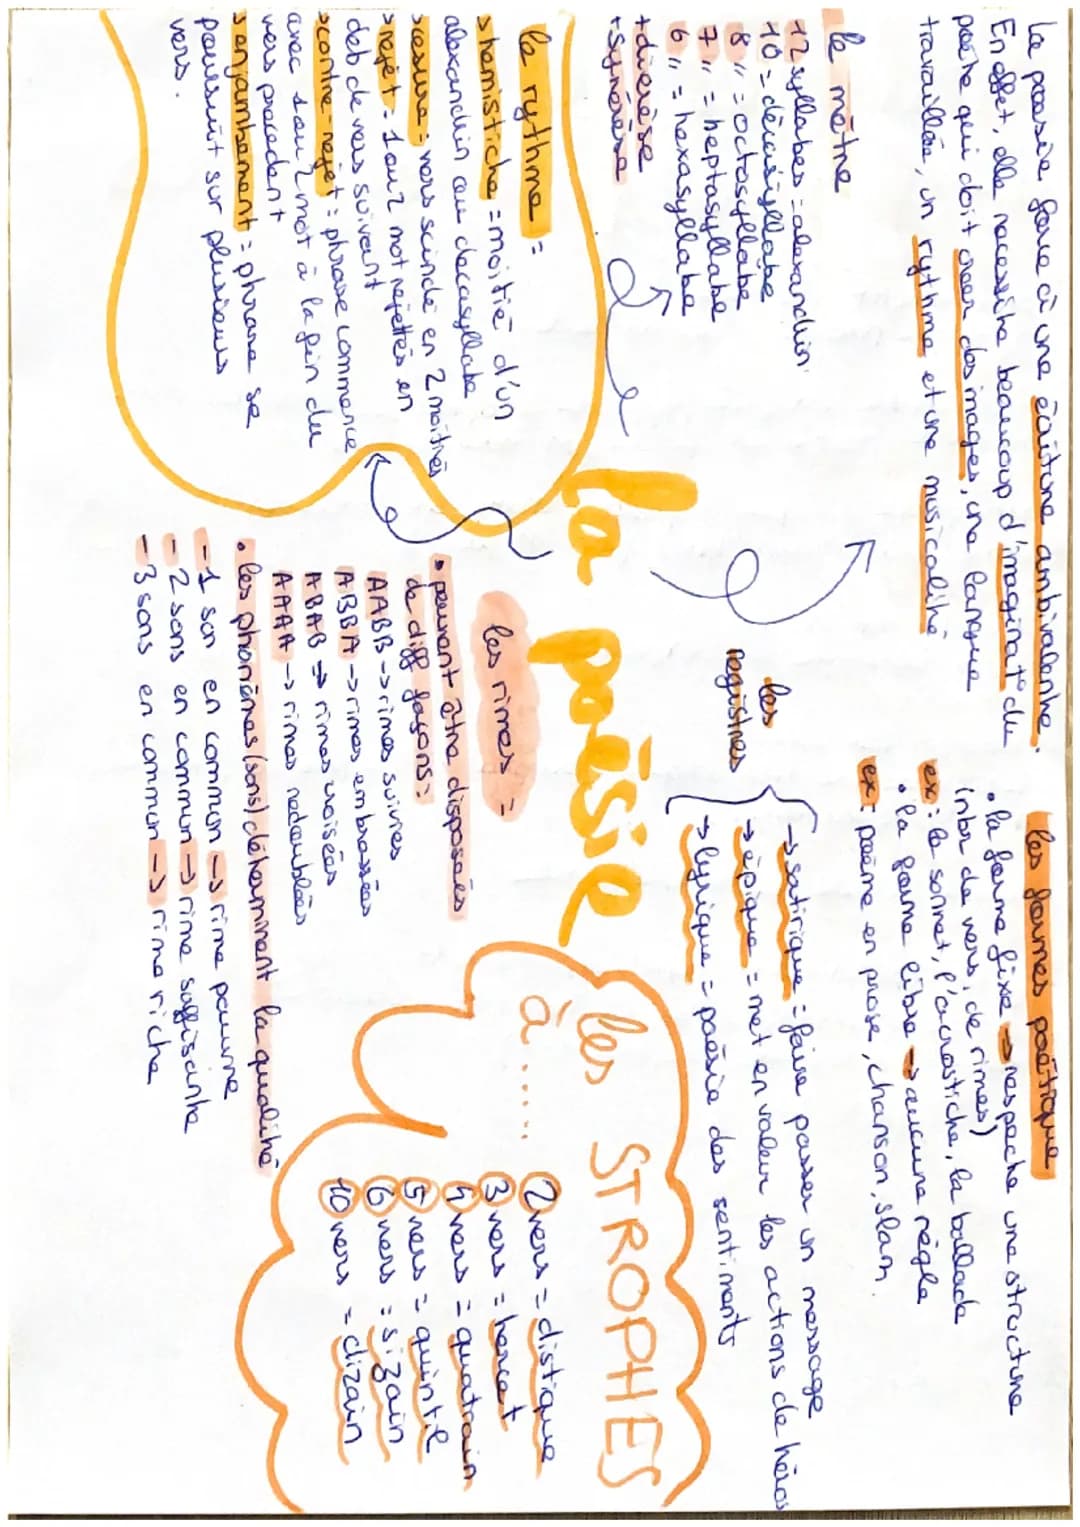 La poésie face à une écriture ambivalente.
En effet, elle necessite beaucoup d'imaginat° du
poète qui doit créer des images, une langue
travaillée, un rythme et une musicalité
les formes poétique
• la forme fixe → respecte une structure
(nbr de vers, de rimes)
ex: le sonnet, l'acrostiche, la ballade
• la forme libre → aucune règle
ex: poème en prose, chanson, slam.
le mètre
12 syllabes = alexandrin
10 = décasyllabe
8 " = octosyllabe
7 " = heptasyllabe
6 " = hexasyllabe
+ diérèse
+ synérèse
les
registres
→ satirique = faire passer un message
→ épique = met en valeur les actions de héros
→ lyrique = poésie des sentiments
la poésie
le rythme =
> hémistiche = moitié d'un
alexandrin ou decasyllabe
> césure = vers scindé en 2 moitiés
> rejet = 1 ou 2 mot rejettés en
deb de vers suivant
> contre-rejet : phrase commence
avec 1 ou 2 mot à la fin du
vers precedent
> enjambement = phrase se
poursuit sur plusieurs
vers.
les rimes =
• peuvent être disposées
de diff façons =
AABB → rimes suivies
ABBA → rimes embrassées
ABAB → rimes croisées
AAAA → rimes redoublées
• les phonèmes (sons) déterminent la qualité
- 1 son en commun → rime pauvre
- 2 sons en commun → rime suffisante
- 3 sons en commun → rime riche
les STROPHES
à ......
2 vers = distique
3 vers = tercet
4 vers = quatrain
5 vers = quintil
6 vers = sizain
10 vers = dizain